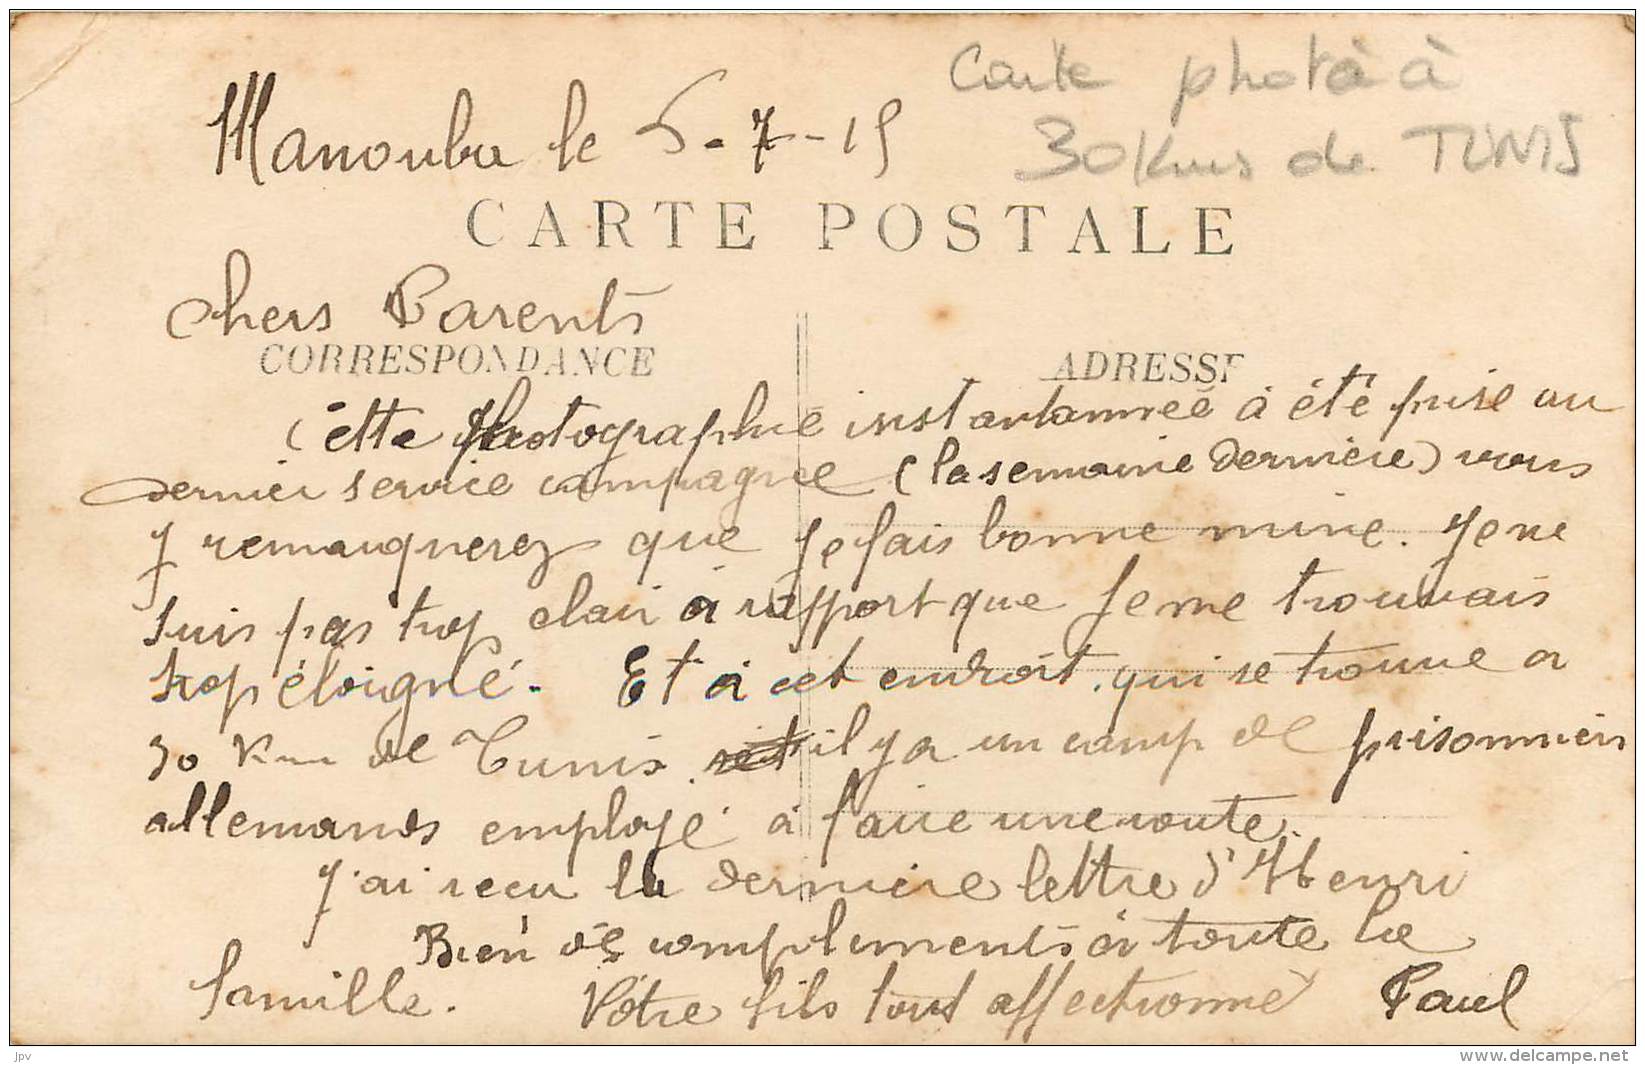 Carte photo à
30 Kms de TUNIS
Manouba le 5-7-15
CARTE POSTALE
Chers Parents
CORRESPONDANCE
ADRESSE
Cette photographie instantannée à été prise au
dernier service campagne (la semaine dernière) vous
y remarquerez que je fais bonne mine. Je ne
suis pas trop clair à rapport que je me trouvais
trop éloigné. Et à cet endroit, qui se trouve a
30 Km de Tunis il y a un camp de prisonniers
allemands employé à faire une route.
J'ai recu la dernière lettre d'Henri
Bien de compliments à toute la
famille. Votre fils tout affectionné Paul
jpv
www.delcampe.net